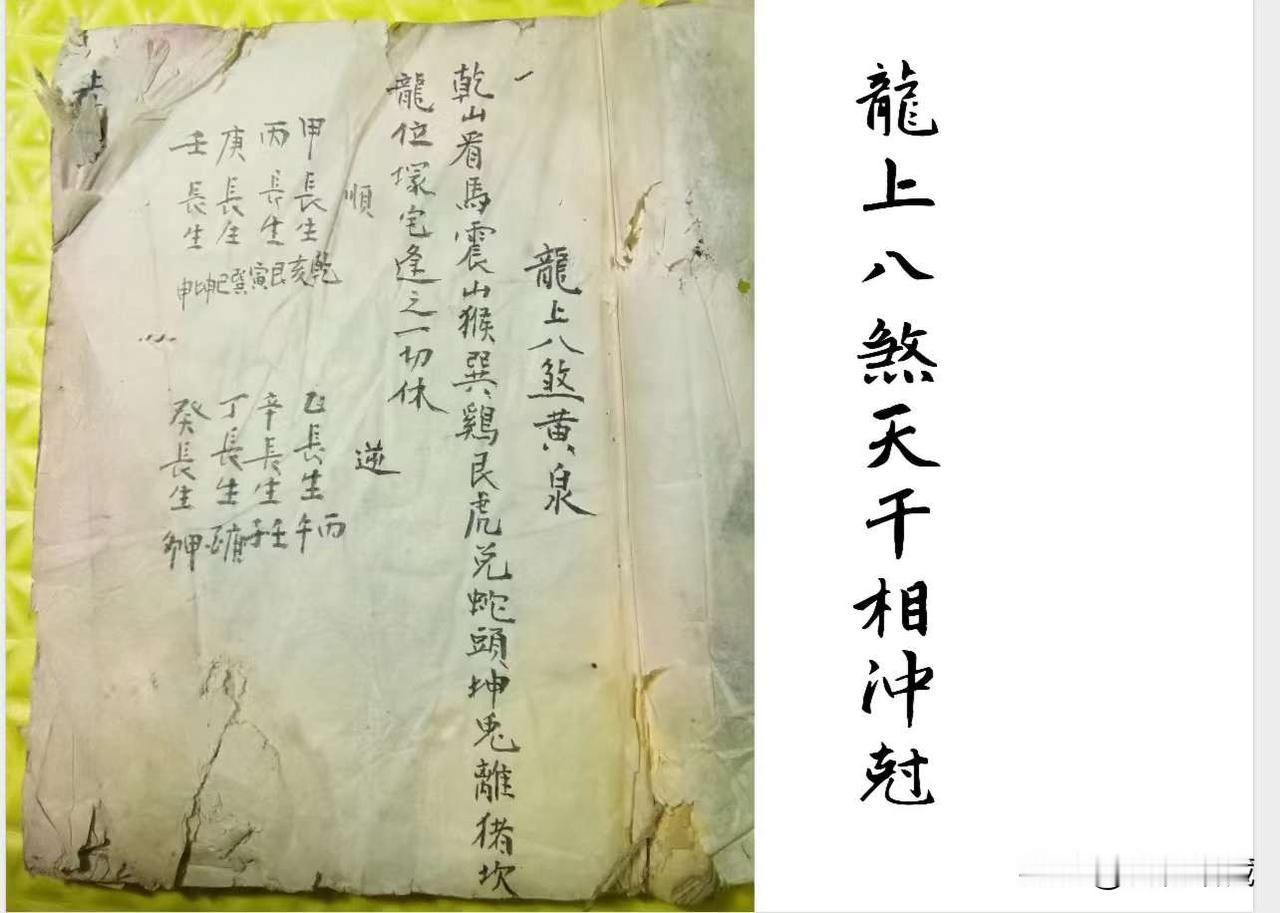 龍上八煞天干相沖尅
龍上八煞黄泉
乾山看馬震山猴巽鷄艮虎兑蛇頭坤兎離猪坎
龍位塚宅逢之一切休
順
甲長生乾亥
丙長生艮寅
庚長生巽巳
壬長生坤申
逆
乙長生丙午
辛長生壬子
丁長生庚酉
癸長生甲卯